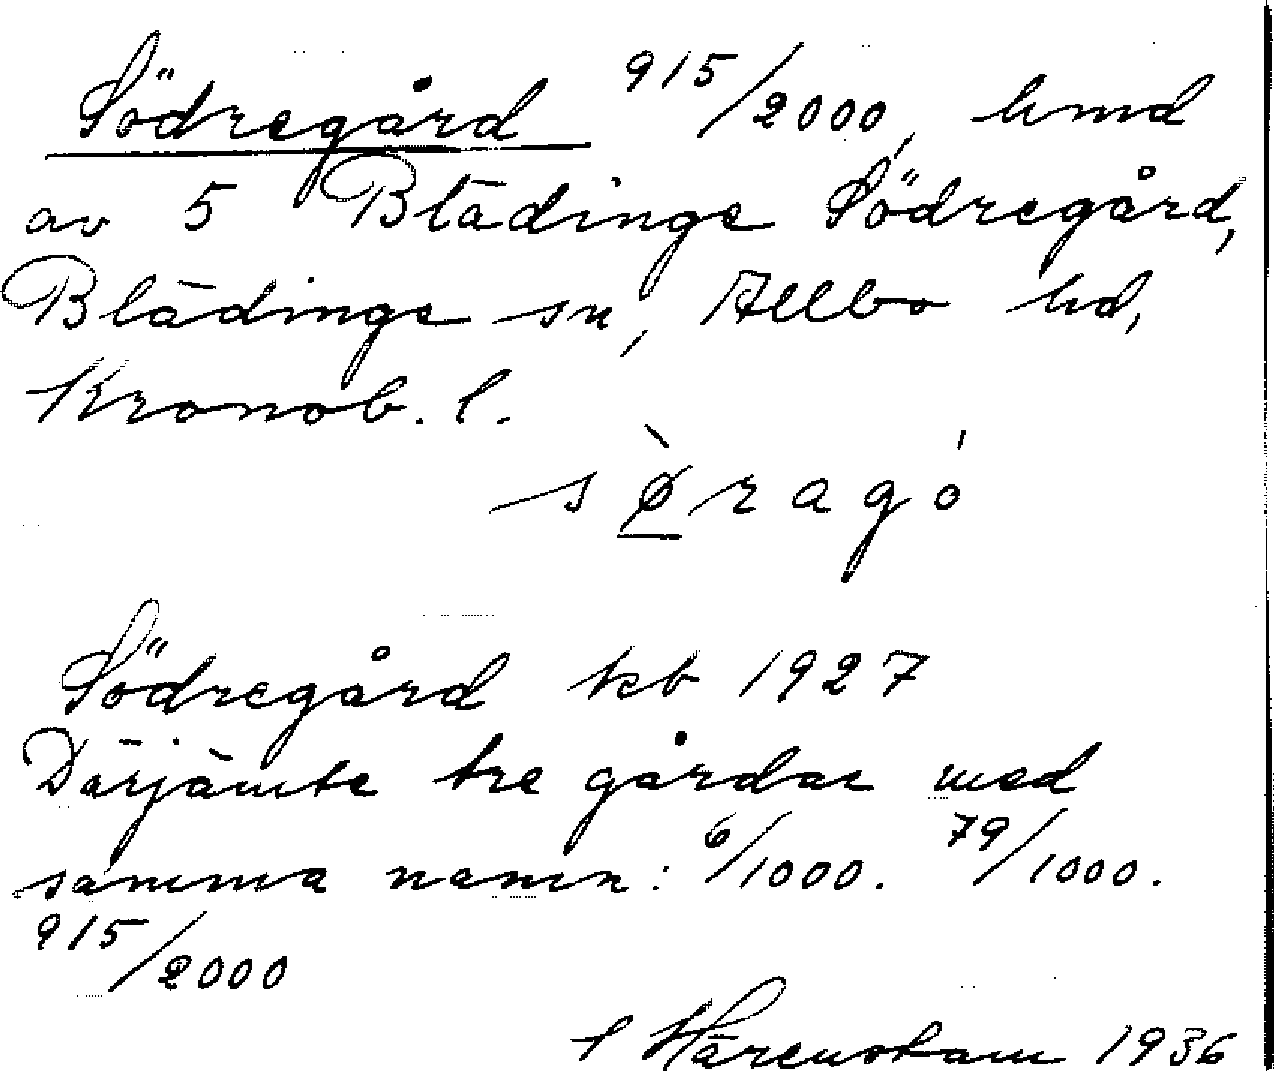 Södregård 915/2000, hmd
av 5 Blädinge Södregård,
Blädinge sn, Allbo hd,
Kronob. l.
sø̱̀ragó
Södregård kb 1927
Därjämte tre gårdar med
samma namn: 6/1000. 79/1000.
915/2000
Härenstam 1936